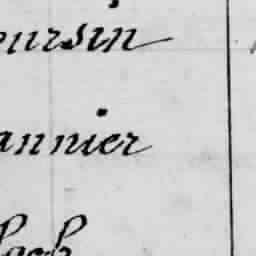 oursin
annier